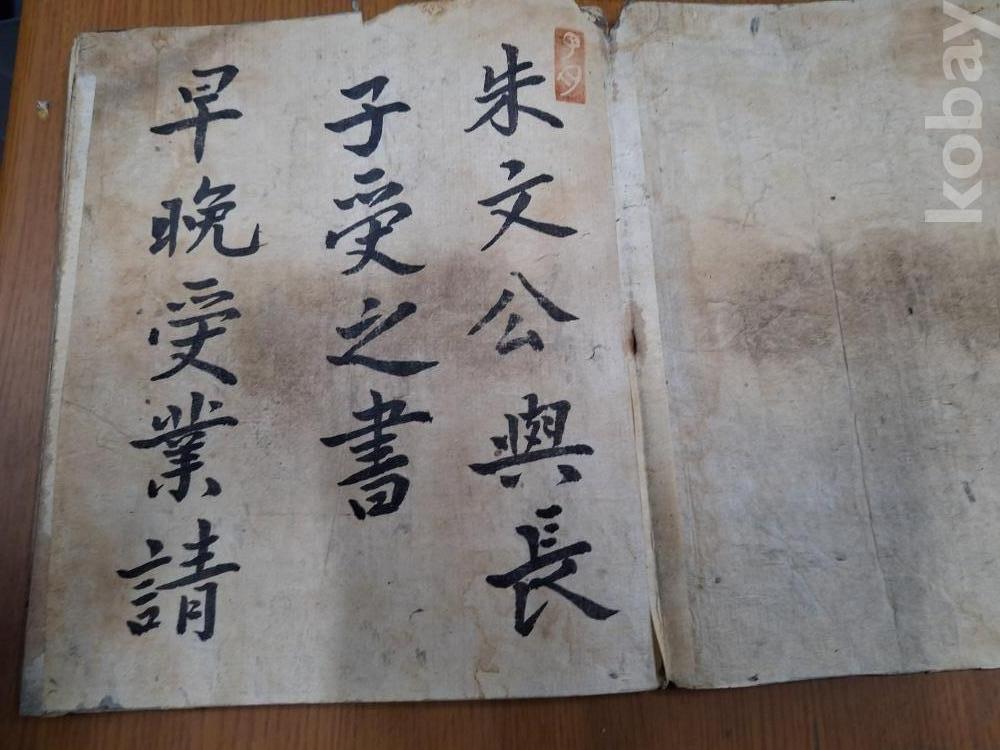 朱文公與長
子受之書
早晩受業請
kobay